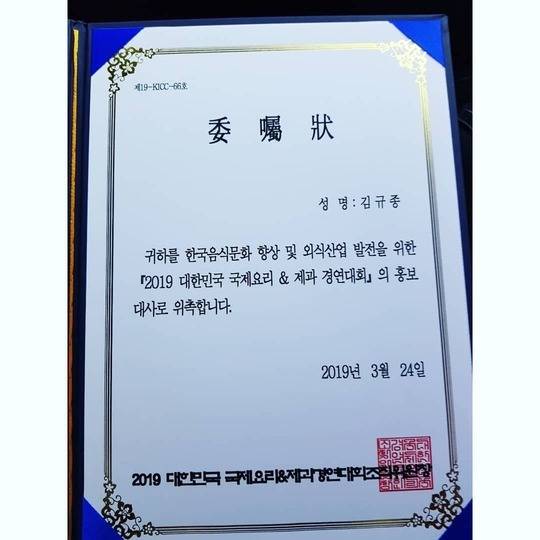 제19-KICC-66호
委囑狀
성 명 : 김규종
귀하를 한국음식문화 향상 및 외식산업 발전을 위한
『2019 대한민국 국제요리 & 제과 경연대회』의 홍보
대사로 위촉합니다.
2019년 3월 24일
2019 대한민국 국제요리&제과경연대회조직위원장